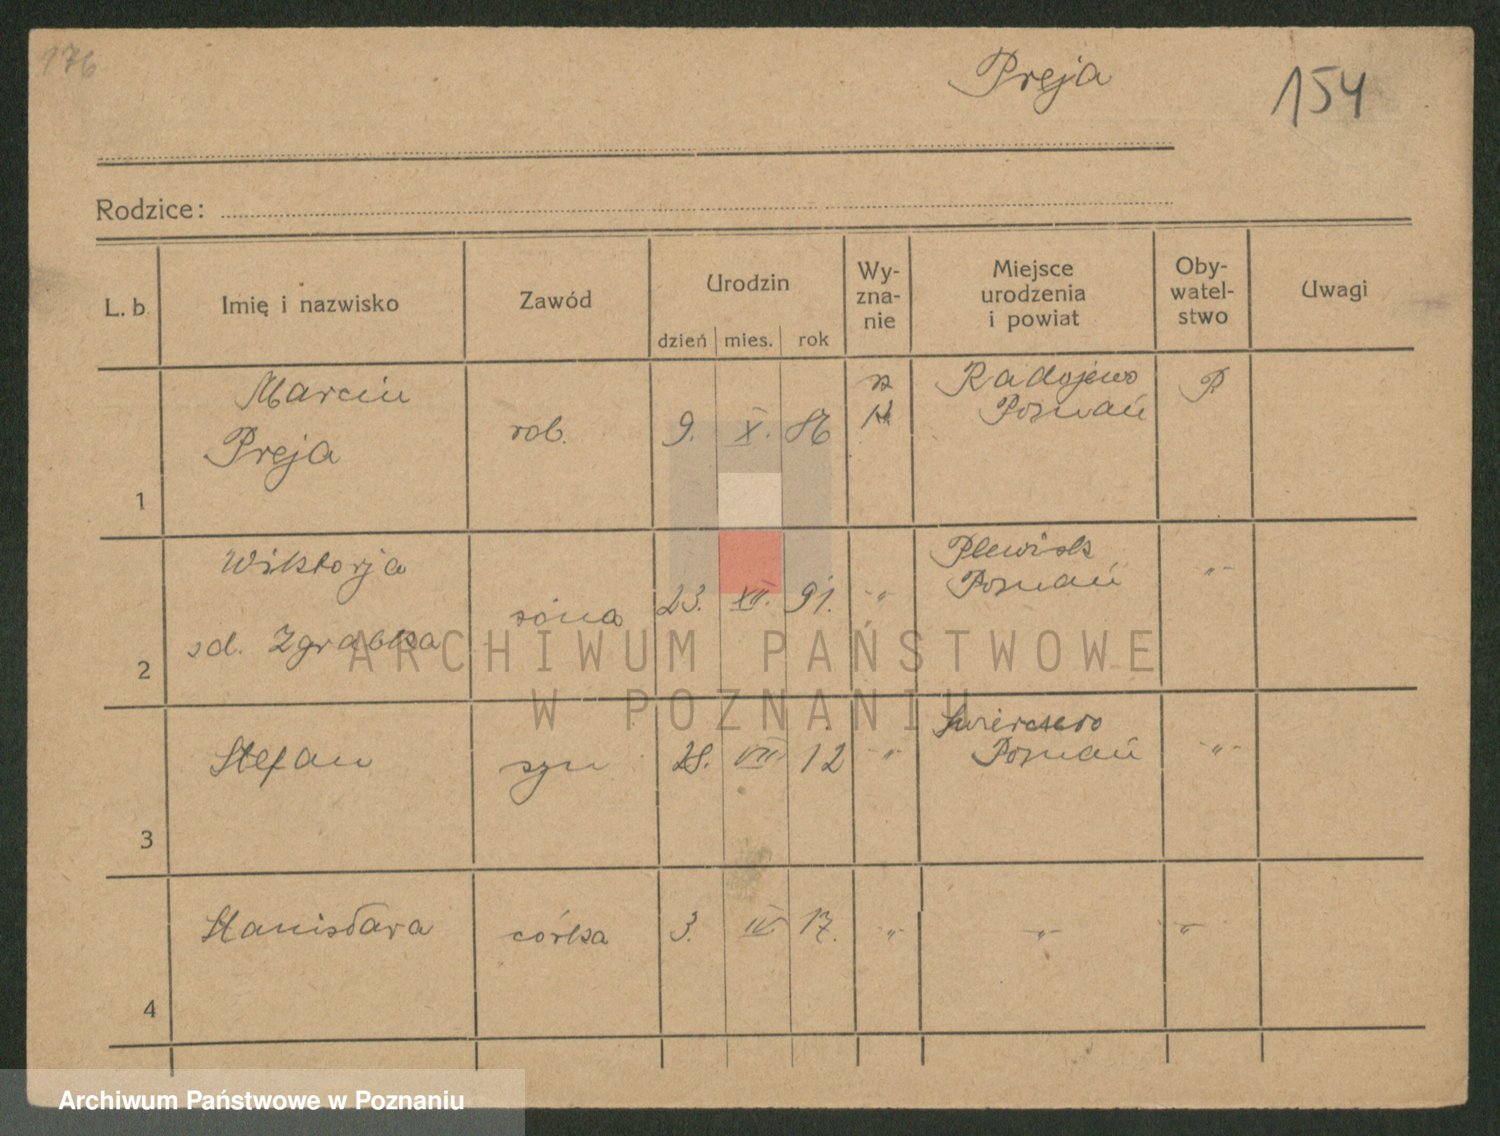 176
Preja
154
Rodzice:
L. b. Imię i nazwisko Zawód Urodzin dzień mies. rok Wy-zna-nie Miejsce urodzenia i powiat Oby-watel-stwo Uwagi
1 Marcin Preja rob. 9. X. 86 Radojewo Poznań P.
2 Wiktorja zd. Zgrabka żona 23. XII. 91. -„- Plewisk Poznań -„-
3 Stefan syn 28. VII. 12 -„- Swierczewo Poznań -„-
4 Stanisława córka 3. IV. 17. -„- -„- -„-
ARCHIWUM PAŃSTWOWE
W POZNANIU
Archiwum Państwowe w Poznaniu